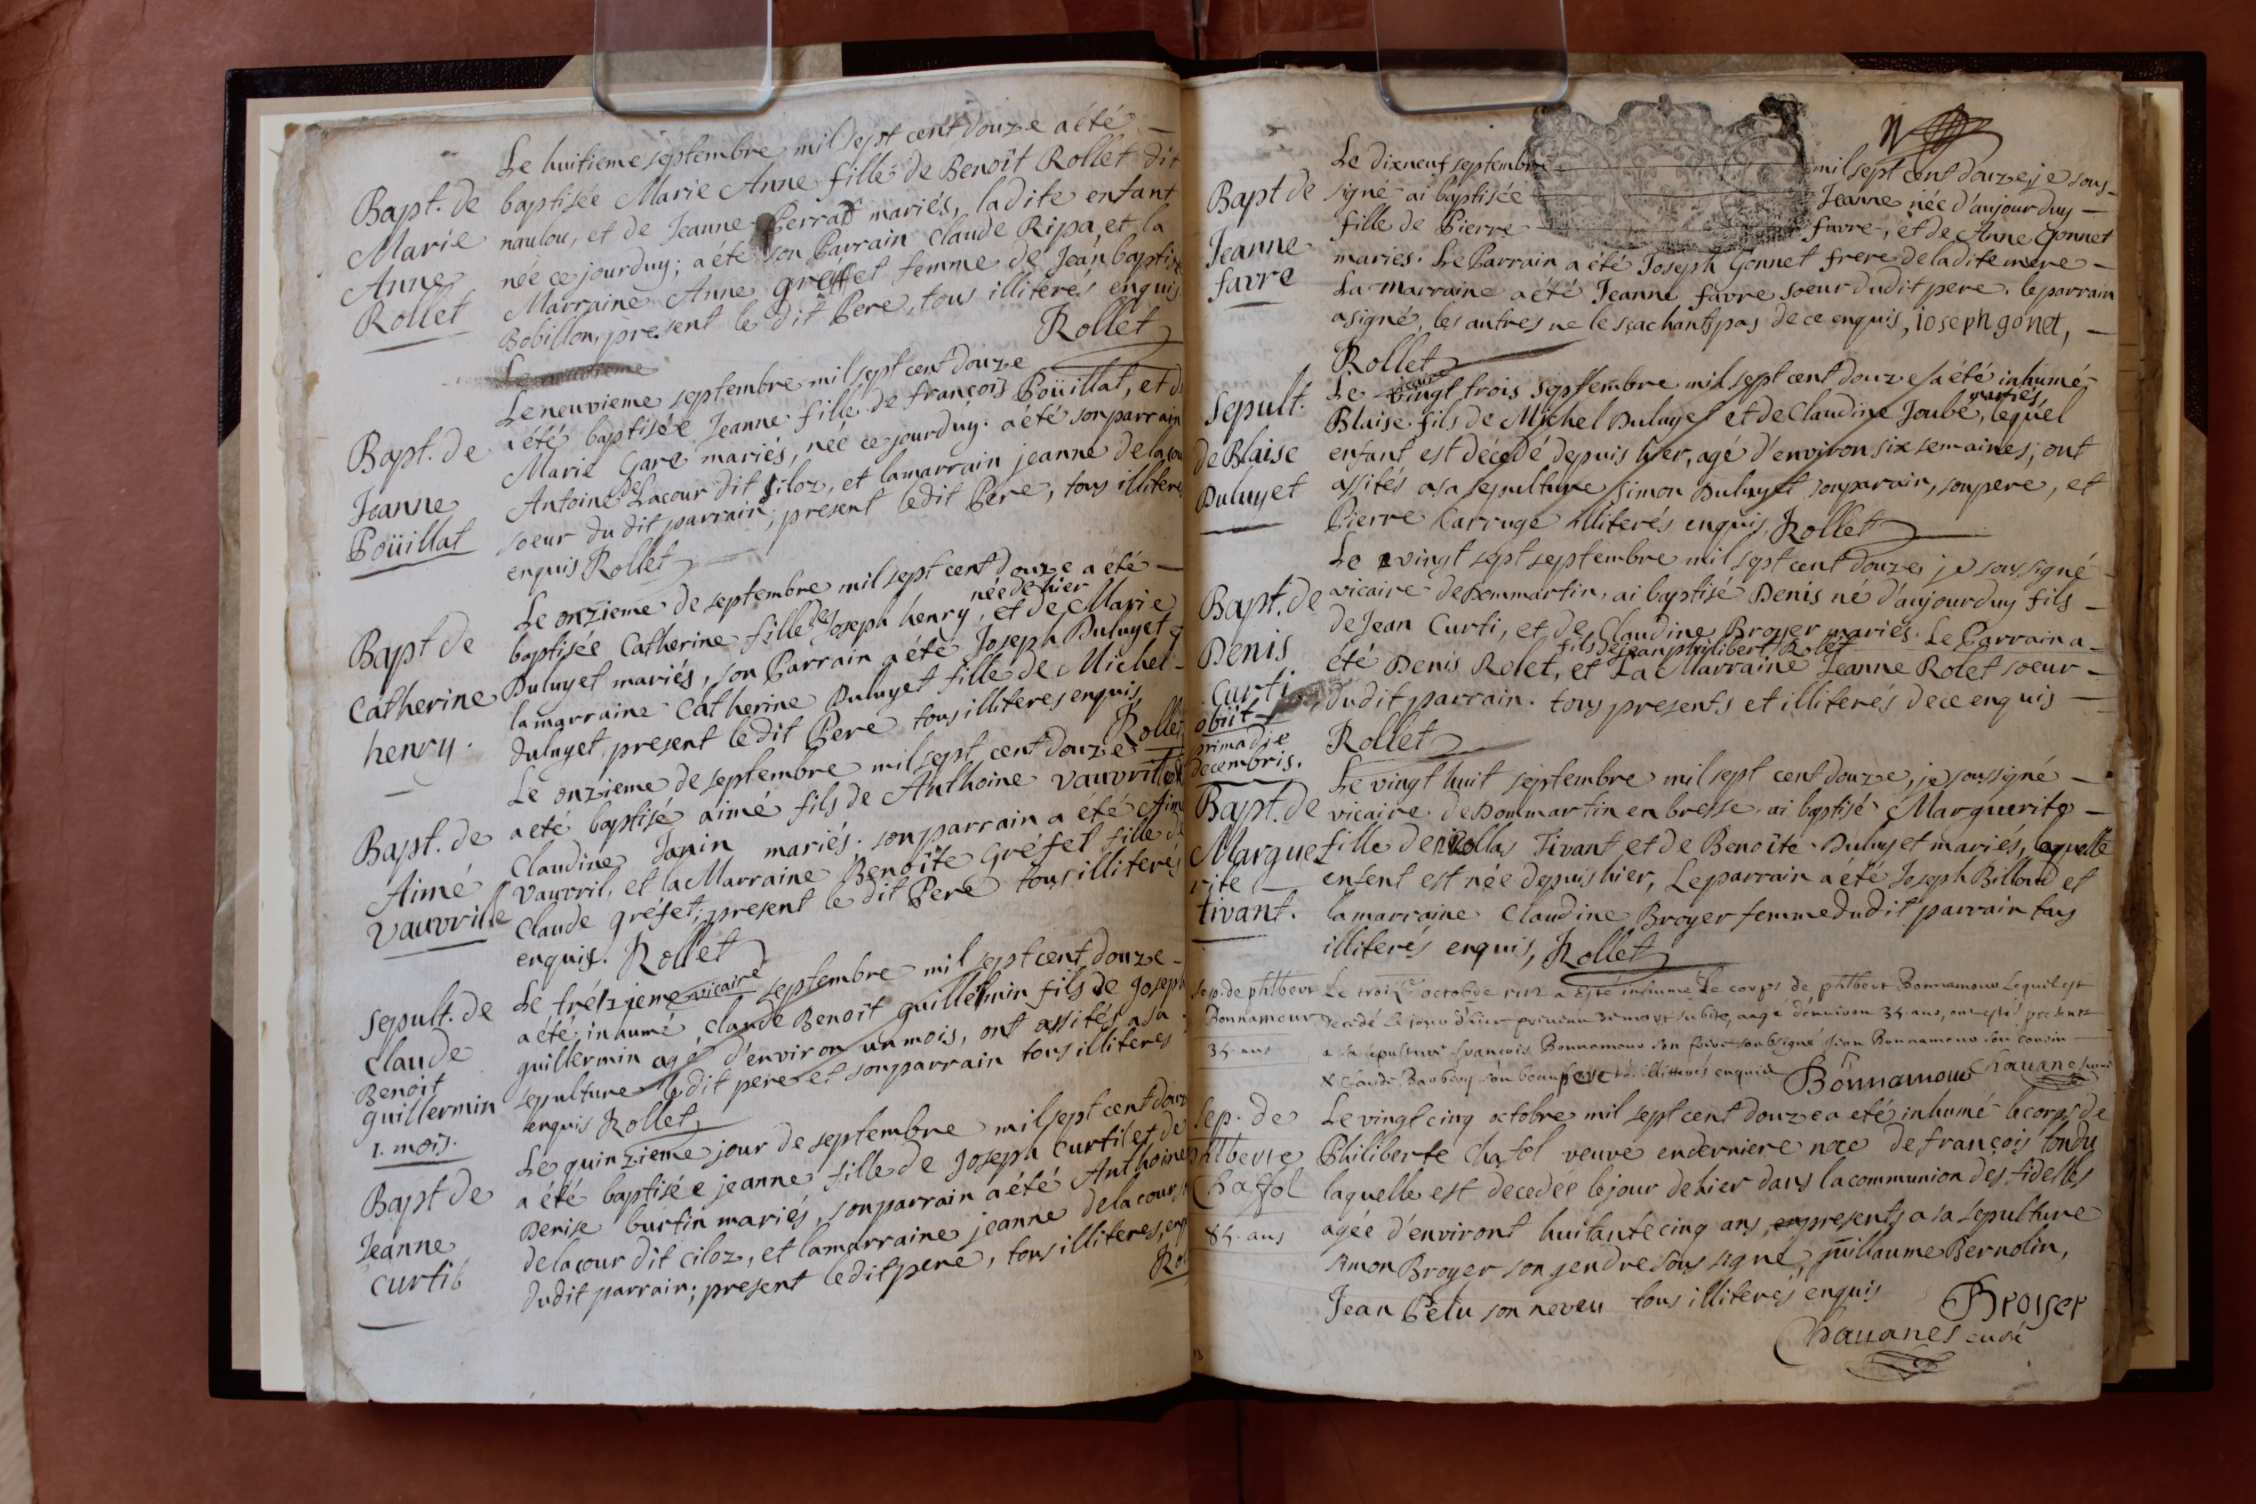 Bapt. de
Marie
Anne
Rollet
Le huitieme septembre mil sept cent douze a été
baptisée Marie Anne fille de Benoît Rollet dit
naulou, et de Jeanne Perrat mariés, ladite enfant
née ce jourduy; a été son Parrain Claude Ripa, et la
Marraine Anne gréffet femme de Jean baptiste
Bobillon, present le dit Pere, tous illiterés enquis
Rollet
Bapt. de
Jeanne
Poüillat
Le neuvieme septembre mil sept cent douze
a été baptisée Jeanne fille de françois Poüillat, et de
Marie Gare mariés, née ce jourduy. a été son parrain
Antoine de Lacour dit siloz, et la marrain jeanne de lacou
soeur du dit parrain; present ledit Pere, tous illiteres
enquis Rollet
Bapt de
Catherine
henry.
Le onzieme de septembre mil sept cent douze a été
née de hier
baptisée Catherine fille de Joseph henry, et de Marie
Duluyet mariés, son Parrain a été Joseph Duluyet
la marraine Catherine Duluyet fille de Michel
duluyet, present le dit Pere tous illiteres enquis
Rollet
Bapt. de
Aimé
Vauvrille
Le onzieme de septembre mil sept cent douze
a eté baptisé aimé fils de Anthoine Vauvrille
Claudine Janin mariés. son parrain a été Aimé
Vauvril, et la Marraine Benoîte Gréfet fille de
Claude gréfet; present le dit Pere tous illiterés
enquis. Rollet
vicaire
Sepult. de
Claude
Benoit
guillermin
1. mois.
Le trézieme septembre mil sept cent douze
a été inhumé Claude Benoît guillermin fils de Joseph
guillermin agé d'environ un mois, ont assités a sa
sepulture ledit pere et son parrain tous illiteres
enquis Rollet
Bapt de
Jeanne
Curtil
Le quinzieme jour de septembre mil sept cent douze
a été baptisée jeanne fille de Joseph Curtil et de
Denise burtin mariés, son parrain a été Anthoine
de lacour dit ciloz, et la marraine jeanne de lacour
dudit parrain; present ledit pere, tous illiteres, enq
Rol
Bapt de
Jeanne
favre
Le dixneuf septembre mil sept cent douze je sous-
signé ai baptisée Jeanne née d'aujourduy
fille de Pierre favre, et de Anne Gonnet
mariés. Le Parrain a été Joseph Gonnet frere de ladite mere
La marraine a été Jeanne favre soeur dudit pere. le parrain
a signé, les autres ne le sçachants pas de ce enquis, ioseph gonet,
Rollet
vicaire
Sepult.
de Blaise
Duluyet
Le vingt trois septembre mil sept cent douze a été inhumé
mariés
Blaise fils de Michel Duluyet et de Claudine Joubé, lequel
enfant est décedé depuis hier, agé d'environ six semaines; ont
assités a sa sepulture Simon Duluyet son parain, son pere, et
Pierre Carruge illiterés enquis Rollet
Bapt. de
Denis
Curti
obiit
prima die
decembris.
Le vingt sept septembre mil sept cent douze, je soussigné
vicaire de Dommartin, ai baptisé Denis né d'aujourduy fils
de Jean Curti, et de Claudine Broyer mariés. Le Parrain a
fils de jean philibert Rolet
été Denis Rolet, et La Marraine Jeanne Rolet soeur
dudit parrain. tous presents et illiterés de ce enquis
Rollet
Bapt. de
Margue
rite
tivant.
Le vingt huit septembre mil sept cent douze, je soussigné
vicaire de Dommartin en bresse ai baptisé Marguerite
fille de nicollas Tivant et de Benoîte Duluyet mariés, laquelle
enfent est née depuis hier, Le parrain a été Joseph Billoud et
la marraine Claudine Broyer femme dudit parrain tous
illiterés enquis, Rollet
Sep. de philbert
Bonnamour
34. ans
octobre 1712 a esté inhumé Le corps de philbert Bonnamour Lequel est
decedé Le jour d'hier mort subite, aagé d'environ 34. ans, ont esté presents
a sa sepulture françois Bonnamour son frere soubsigné Jean Bonnamour son cousin
& Claude Barberey son beau pere illitteres enquis Bonnamour Chauanes curé
Sep. de
philberte
Chaffol
84. ans
Le vingt cinq octobre mil sept cent douze a eté inhumé le corps de
Philiberte Chafol veuve en derniere noce de françois tondu
laquelle est decedée le jour de hier dans la communion des fidelles
agée d'environt huitante cinq ans, presents a sa sépulture
simon Broyer son gendre sous signé, guillaume Bernolin,
Jean Pelu son neveu tous illiterés enquis
Broyer
Chauanes curé